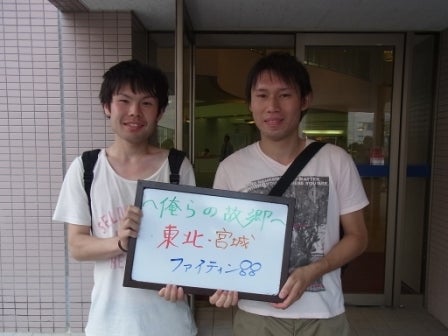 〜俺らの故郷へ
東北・宮城
ファイティン88